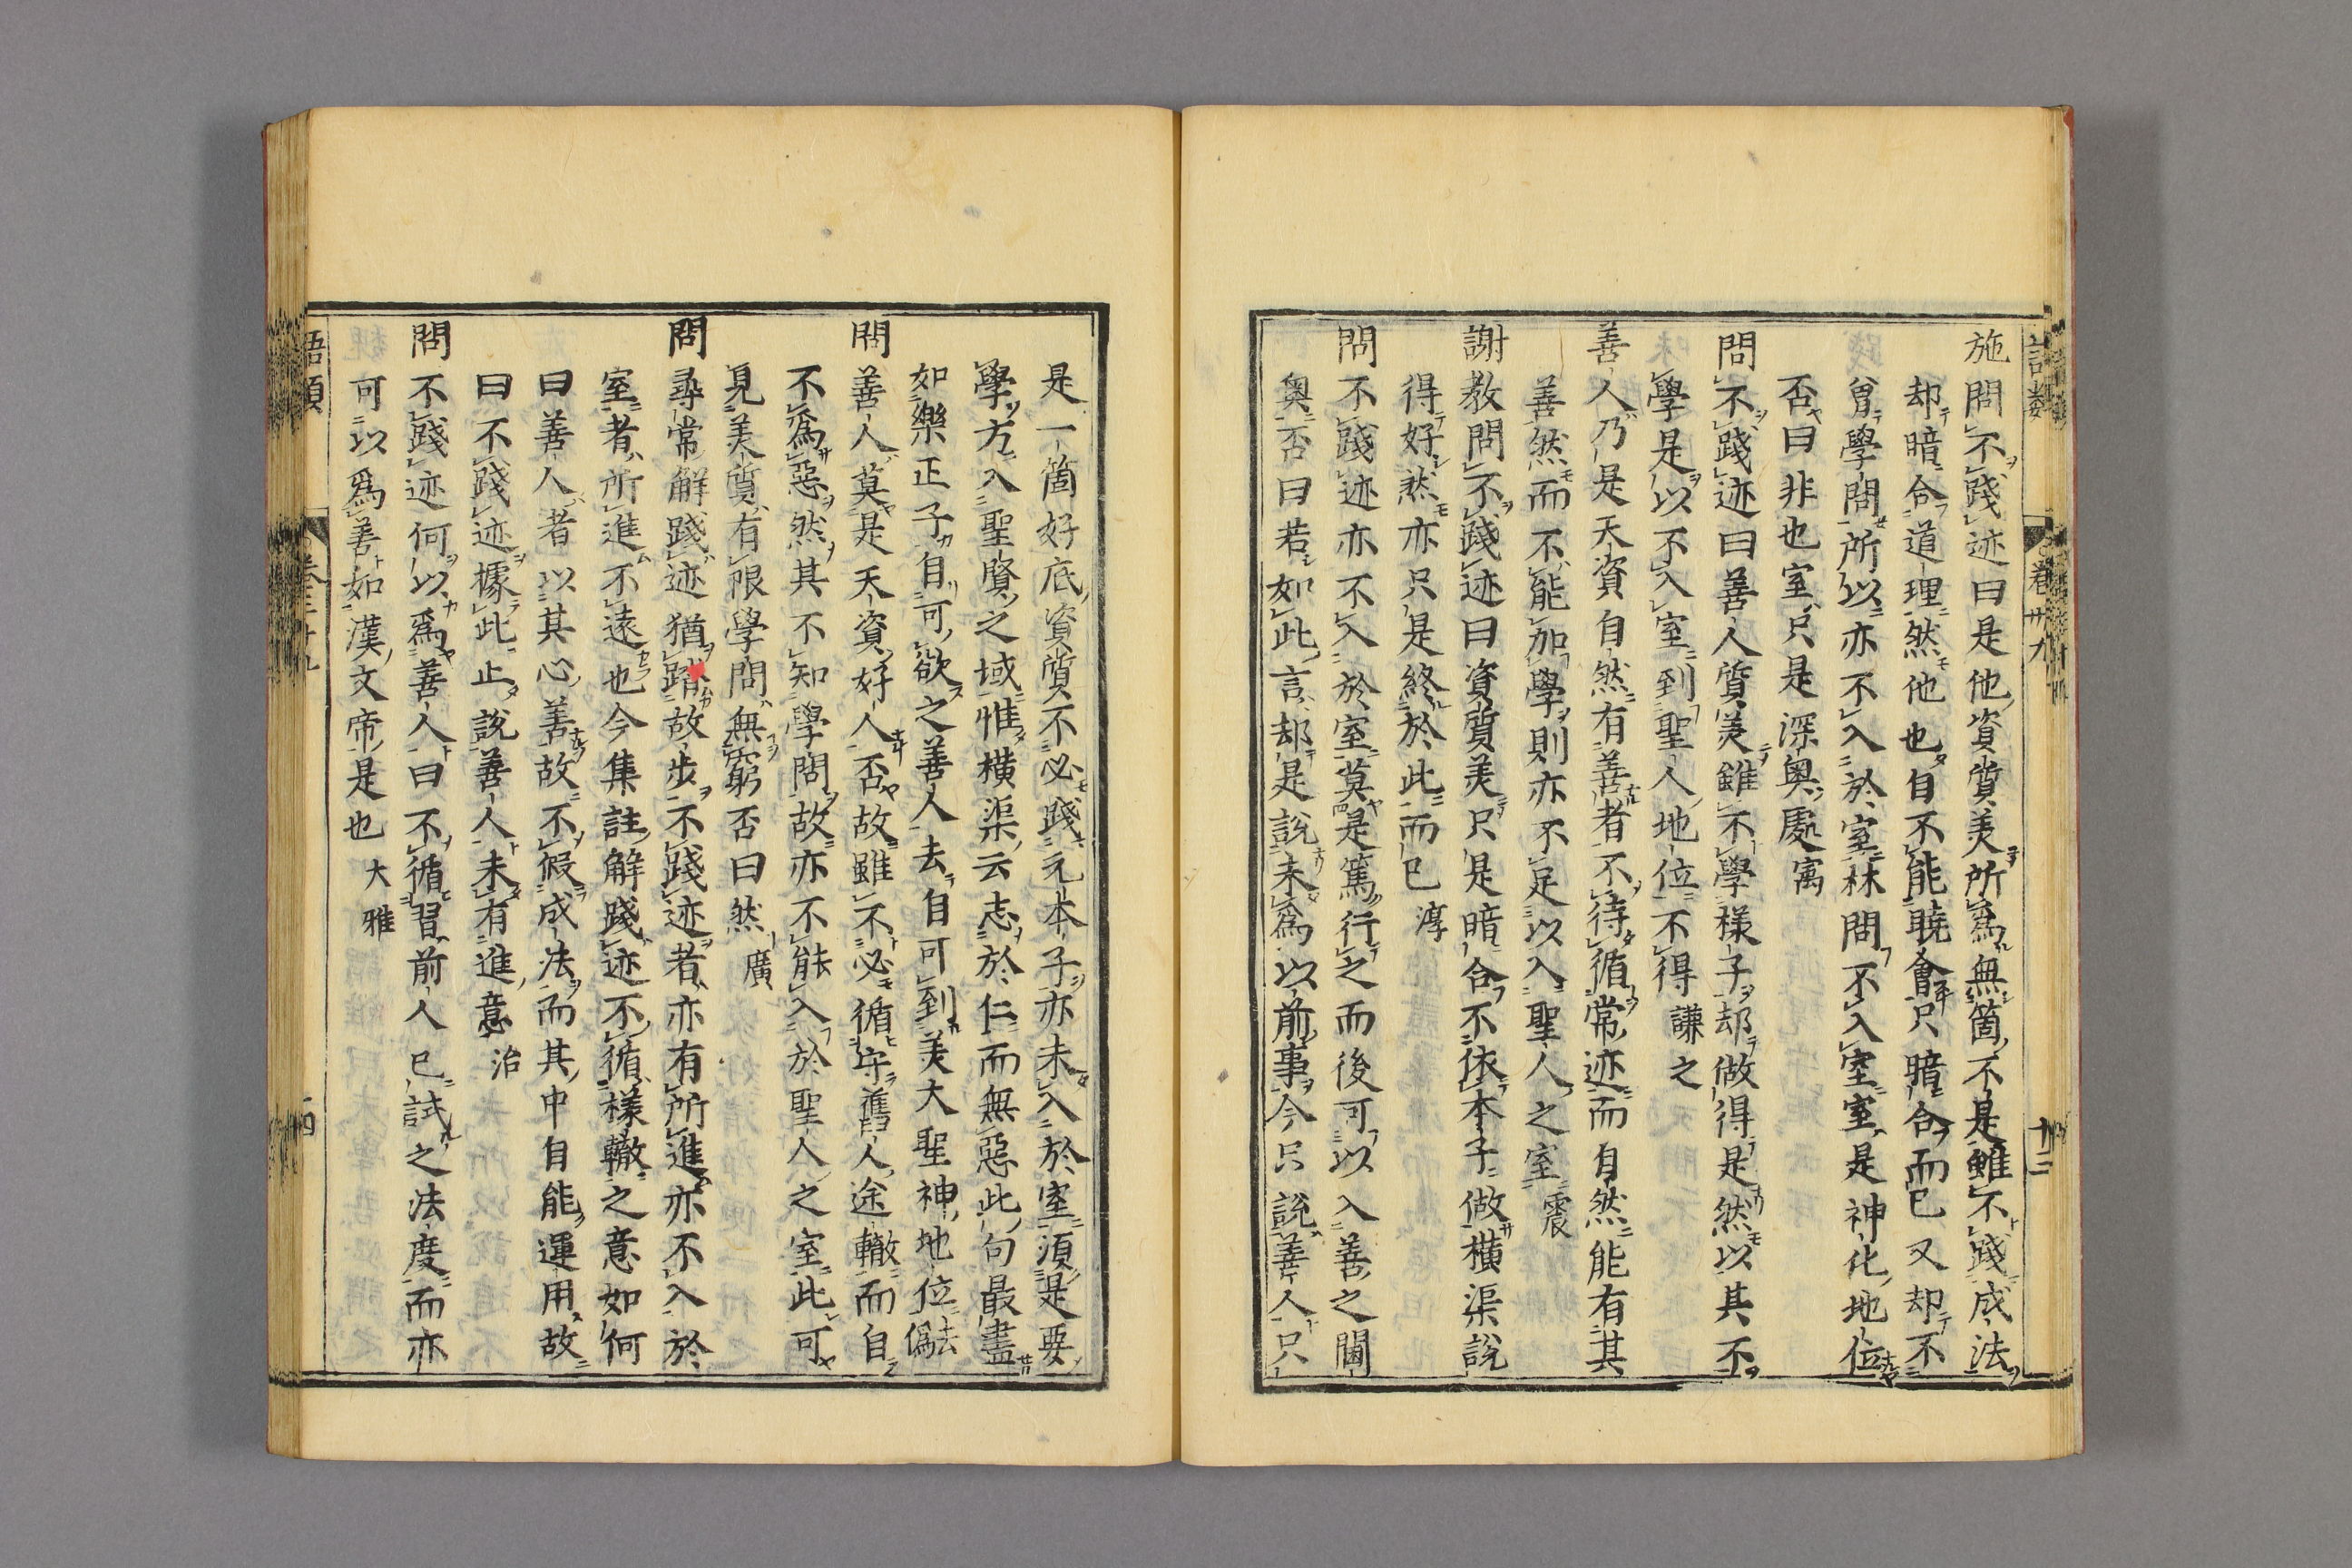 語類
卷卅九
十三
施問不踐迹曰是他資質美所爲無箇不是雖不踐成法
却暗合道理然他也自不能曉會只暗合而已又却不
曾學問所以亦不入於室林問不入室室是神化地位
否曰非也室只是深奧處寓
問不踐迹曰善人質美雖不學樣子却做得是然以其不
學是以不入室到聖人地位不得謙之
善人乃是天資自然有善者不待循常迹而自然能有其
善然而不能加學則亦不足以入聖人之室震
謝教問不踐迹曰資質美只是暗合不依本子做橫渠說
得好然亦只是終於此而已淳
問不踐迹亦不入於室莫是篤行之而後可以入善之閫
奧否曰若如此言却是說未爲以前事今只說善人只
是一箇好底資質不必踐元本子亦未入於室須是要
學方入聖賢之域惟橫渠云志於仁而無惡此句最盡
如樂正子自可欲之善人去自可到美大聖神地位去僞
問善人莫是天資好人否故雖不必循守舊人途轍而自
不爲惡然其不知學問故亦不能入於聖人之室此可
見美質有限學問無窮否曰然廣
問尋常解踐迹猶踏故步不踐迹者亦有所進亦不入於
室者所進不遠也今集註解踐迹不循樣轍之意如何
曰善人者以其心善故不假成法而其中自能運用故
曰不踐迹據此止說善人未有進意洽
問不踐迹何以爲善人曰不循習前人已試之法度而亦
可以爲善如漢文帝是也大雅
語類
卷三十九